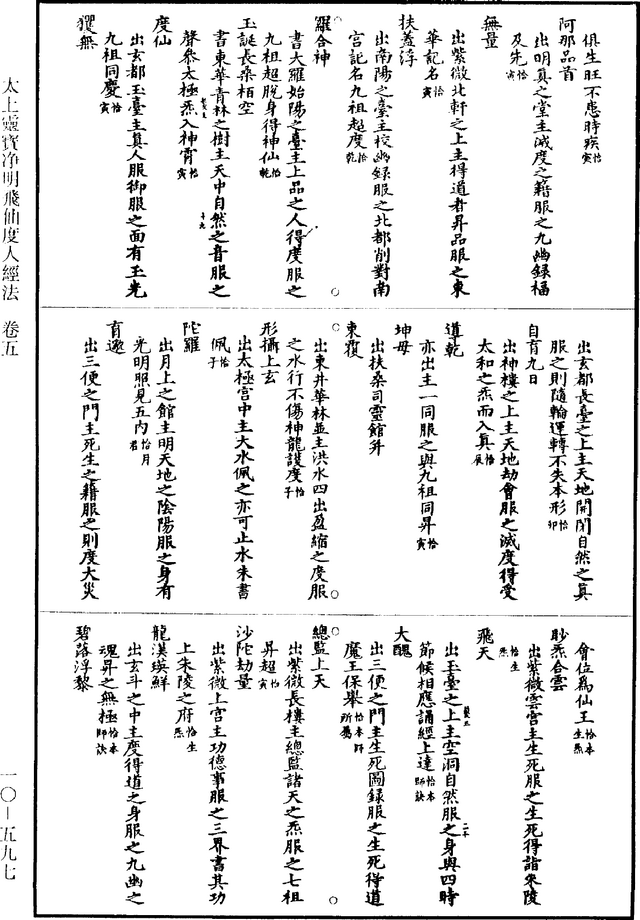 俱生旺不患時疾恰寅
阿那品首
出明真之堂主滅度之籍服之九幽録福
及先恰寅
無量
出紫微北軒之上主得道者昇品服之東
華記名恰寅
扶蓋浮
出南陽之臺主校幽録服之北都削對南
宮記名九祖超度恰乾
羅合神
書大羅始陽之臺主上品之人得度服之
九祖超脱身得神仙恰乾
玉誕長桑栢空
書東華青林之樹主天中自然之音服之
聲參太極炁入神霄恰寅
度仙
出玄都玉臺主真人服御服之面有玉光
九祖同慶恰寅
玃無
出玄都長臺之上主天地開閉自然之真
服之則隨輪運轉不失本形恰卯
自育九日
出神樓之上主天地劫會服之滅度得受
太和之炁而入真恰辰
道乾
亦出主一同服之與九祖同昇恰寅
坤母
出扶桑司靈館并
東覆
出東井華林並主洪水四出盈縮之度服
之水行不傷神龍護度恰子
形攝上玄
出太極宫中主大水佩之亦可止水朱書
佩恰子
陀羅
出月上之館主明天地之陰陽服之身有
光明照見五内恰月君
育邈
出三便之門主死生之籍服之則度大災
會位爲仙王恰本生炁
眇炁合雲
出紫微雲宫主生死服之生死得詣朱陵
恰生炁
飛天
出玉臺之上主空洞自然服之身與四時
節候相應誦經上達恰本師訣
大醜
出三便之門主生死圖録服之生死得道
魔王保舉恰本師所屬
總監上天
出紫微長樓主總監諸天之炁服之七祖
昇超恰寅
沙陀劫量
出紫微上宫主功德事服之三界書其功
上朱陵之府恰生炁
龍漢瑛鮮
出玄斗之中主度得道之身服之九幽之
魂昇之無極恰本師訣
碧落浮黎
太上靈寶净明飛仙度人經法 卷五
一〇—五九七